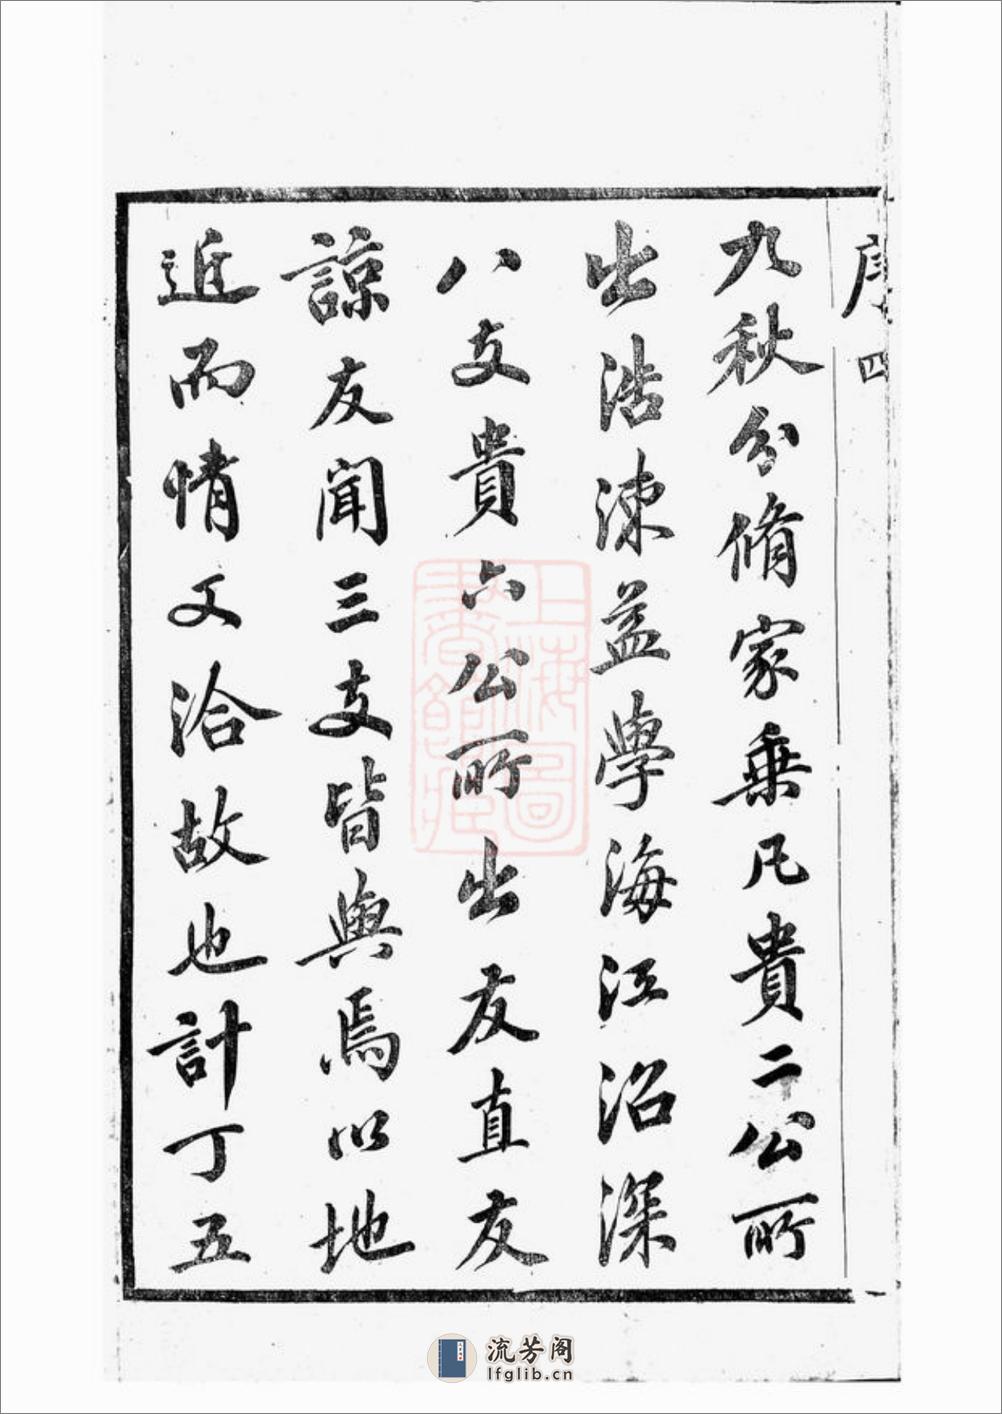 序 四
九秋分脩家乗凡貴二公所
出浩涑益學海江沿深
八支貴六公所出友直友
諒友聞三支皆與焉以地
近而情又洽故也計丁五
上海圖書館藏
流芳阁
lfglib.cn